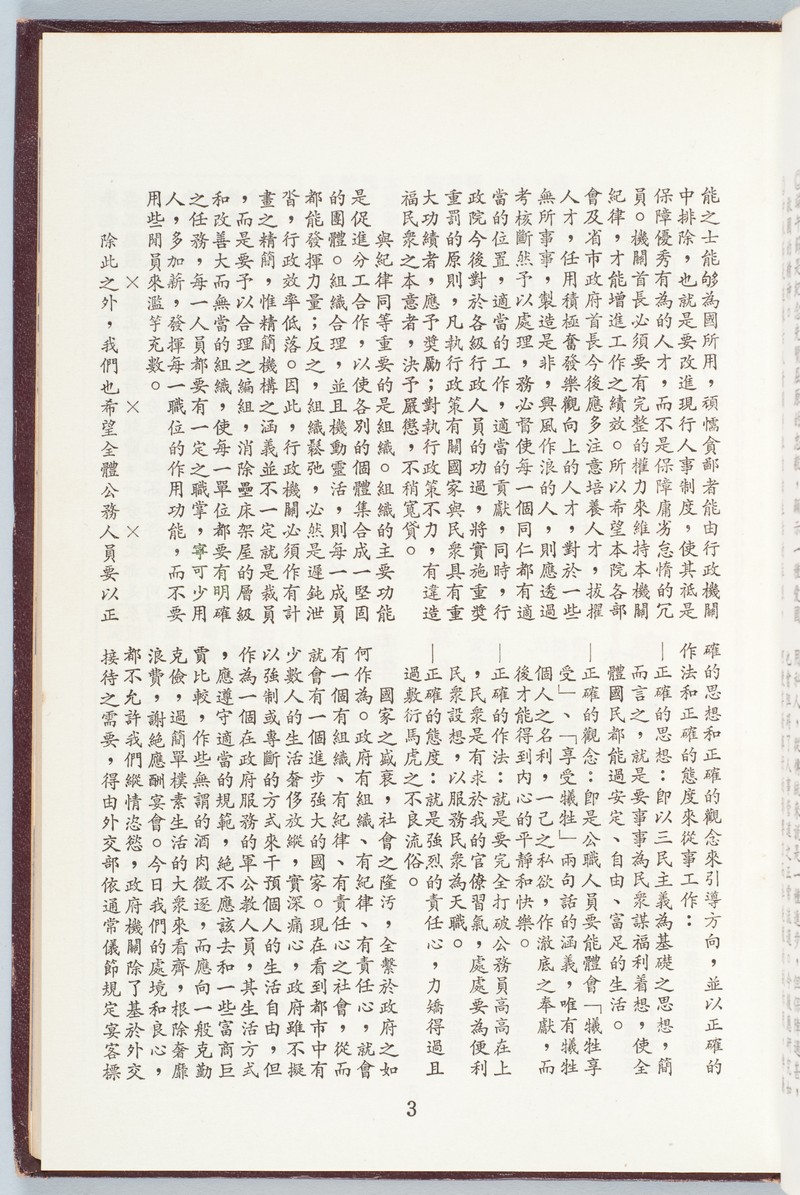 能之士能够為國所用，頑懦貪鄙者能由行政機關
中排除，也就是要改進現行人事制度，使其祇是
保障優秀有為的人才，而不是保障庸劣怠惰的冗
員。機關首長必須要有完整的權力來維持本機關
紀律，才能增進工作之績效。所以希望本院各部
會及省市政府首長今後應多注意培養人才，拔擢
人才，任用積極奮發樂觀向上的人才，對於一些
無所事事，製造是非，興風作浪的人，則應透過
考核斷然予以處理，務必督使每一個同仁都有適
當的位置，適當的工作，適當的貢獻，同時，行
政院今後對於各級行政人員的功過，將實施重獎
重罰的原則，凡執行政策有關國家與民衆具有重
大功績者，應予獎勵；對執行政策不力，有違造
福民衆之本意者，決予嚴懲，不稍寬貸。
與紀律同等重要的是組織。組織的主要功能
是促進分工合作，以使各別的個體集合成一堅固
的團體。組織合理，並且機動靈活，則每一成員
都能發揮力量；反之，組織鬆弛，必然是遲鈍泄
沓，行政效率低落。因此，行政機關必須作有計
畫之精簡，惟精簡機構之涵義並不一定就是裁員
，而是要予以合理之編組，消除疊床架屋的層級
和改善大而無當的組織，使每一單位都要有明確
之任務，每一人員都要有一定之職掌，寧可少用
人，多加薪，發揮每一職位的作用功能，而不要
用些閒員來濫竽充數。
× × ×
除此之外，我們也希望全體公務人員要以正
確的思想和正確的觀念來引導方向，並以正確的
作法和正確的態度來從事工作：
—正確的思想：卽以三民主義為基礎之思想，簡
而言之，就是要事事為民衆謀福利着想，使全
體國民都能過安定、自由、富足的生活。
—正確的觀念：卽是公職人員要能體會「犧牲享
受」、「享受犧牲」兩句話的涵義，唯有犧牲
個人之名利，一己之私欲，作澈底之奉獻，而
後才能得到內心的平靜和快樂。
—正確的作法：就是要完全打破公務員高高在上
，民衆是有求於我的官僚習氣，處處要為便利
民衆設想，以服務民衆為天職。
—正確的態度：就是強烈的責任心，力矯得過且
過敷衍馬虎之不良流俗。
國家之盛衰，社會之隆汚，全繫於政府之如
何作為。政府有組織、有紀律、有責任心，就會
有一個有組織、有紀律、有責任心之社會，從而
就會有一個進步強大的國家。現在看到都市中有
少數人的生活奢侈放縱，實深痛心，政府雖不擬
以強制或專斷的方式來干預個人的生活自由，但
作為一個在政府服務的軍公教人員，其生活方式
，應遵守適當的規範，絕不應該去和一些富商巨
賈比較，作些無謂的酒肉徵逐，而應向一般克勤
克儉，過簡單樸素生活的大衆來看齊，根除奢靡
浪費，謝絕應酬宴會。今日我們的處境和良心，
都不允許我們縱情恣慾，政府機關除了基於外交
接待之需要，得由外交部依通常儀節規定宴客標
3